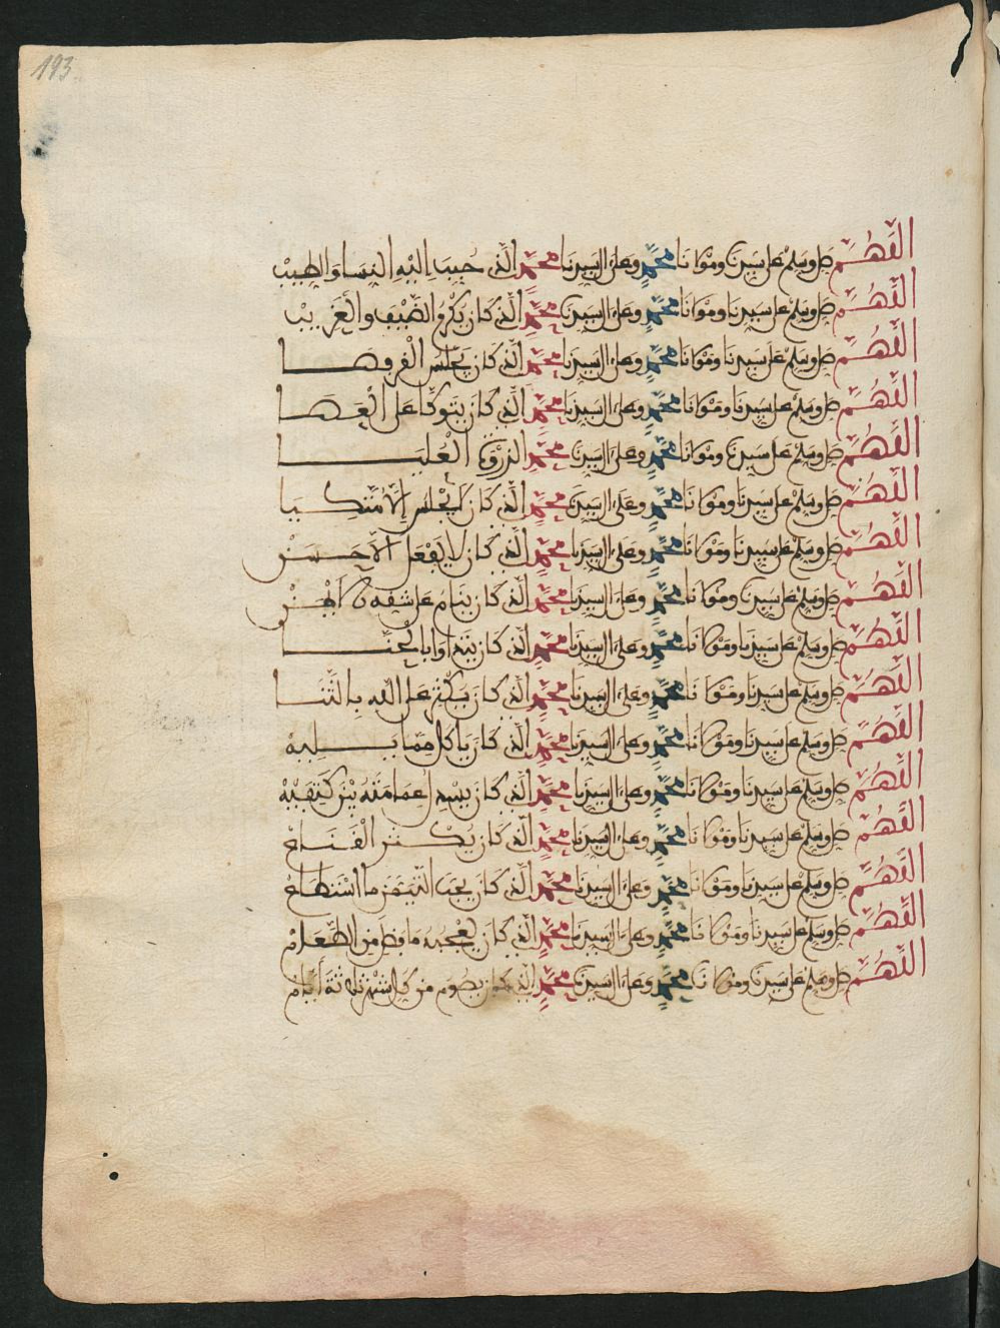 193
اللهم صل وسلم على سيدنا ومولانا محمد وعلى ال سيدنا محمد الذي حبب اليه النساء والطيب
اللهم صل وسلم على سيدنا ومولانا محمد وعلى ال سيدنا محمد الذي كان يكرم الضيف والغريب
اللهم صل وسلم على سيدنا ومولانا محمد وعلى ال سيدنا محمد الذي كان يجلس القرفصا
اللهم صل وسلم على سيدنا ومولانا محمد وعلى ال سيدنا محمد الذي كان يتوكا على العصا
اللهم صل وسلم على سيدنا ومولانا محمد وعلى ال سيدنا محمد العليا
اللهم صل وسلم على سيدنا ومولانا محمد وعلى ال سيدنا محمد الذي كان لا يجلس الا متكيا
اللهم صل وسلم على سيدنا ومولانا محمد وعلى ال سيدنا محمد الذي كان لا يفعل الا حسن
اللهم صل وسلم على سيدنا ومولانا محمد وعلى ال سيدنا محمد الذي كان ينام على شقه الايمن
اللهم صل وسلم على سيدنا ومولانا محمد وعلى ال سيدنا محمد الذي كان يتداوا بالحنا
اللهم صل وسلم على سيدنا ومولانا محمد وعلى ال سيدنا محمد الذي كان يكثر على الله بالثنا
اللهم صل وسلم على سيدنا ومولانا محمد وعلى ال سيدنا محمد الذي كان ياكل مما يليه
اللهم صل وسلم على سيدنا ومولانا محمد وعلى ال سيدنا محمد الذي كان يسدل عمامته بين كتفيه
اللهم صل وسلم على سيدنا ومولانا محمد وعلى ال سيدنا محمد الذي كان يكثر القناع
اللهم صل وسلم على سيدنا ومولانا محمد وعلى ال سيدنا محمد الذي كان يحب التيمن ما استطاع
اللهم صل وسلم على سيدنا ومولانا محمد وعلى ال سيدنا محمد الذي كان يعجبه ما فضل من الطعام
اللهم صل وسلم على سيدنا ومولانا محمد وعلى ال سيدنا محمد الذي كان يصوم من كل شهر ثلاثة ايام